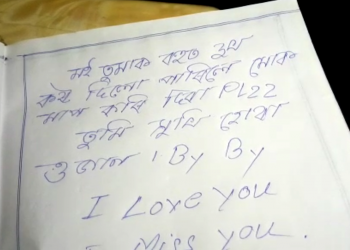 মই তুমাক বহুত দুখ
কষ্ট দিলো পাৰিলে মোক
মাপ কৰি দিবা PLZZ
তুমি সুখি হোবা
গুডলাক । By By
I Love you
I Miss you.